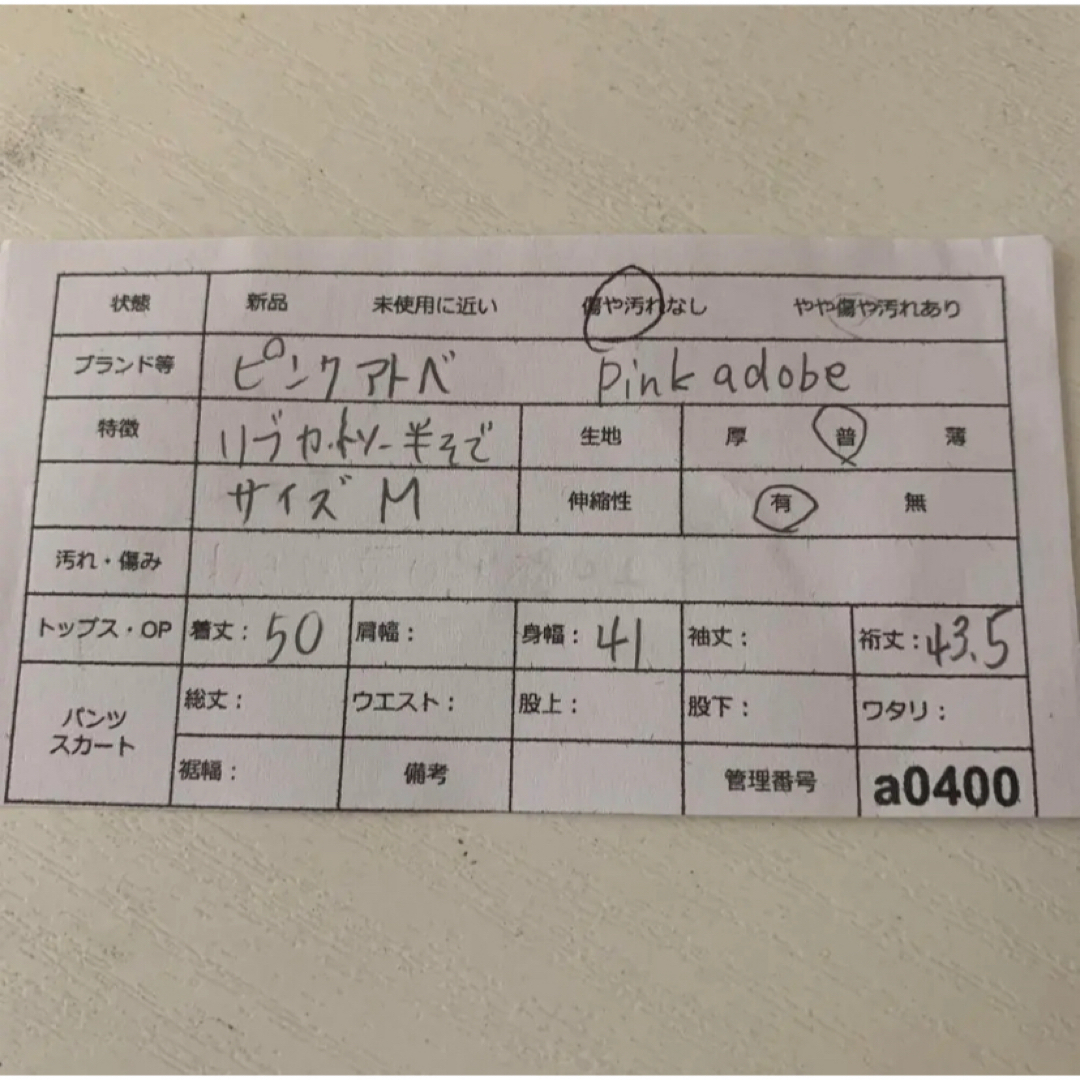 状態 新品 未使用に近い 傷や汚れなし やや傷や汚れあり
ブランド等 ピンクアトベ pink adobe
特徴 リブカットソー半そで 生地 厚 普 薄
サイズ M 伸縮性 有 無
汚れ・傷み
トップス・OP 着丈：50 肩幅： 身幅：41 袖丈： 裄丈：43.5
パンツ スカート 総丈： ウエスト： 股上： 股下： ワタリ：
裾幅： 備考 管理番号 a0400